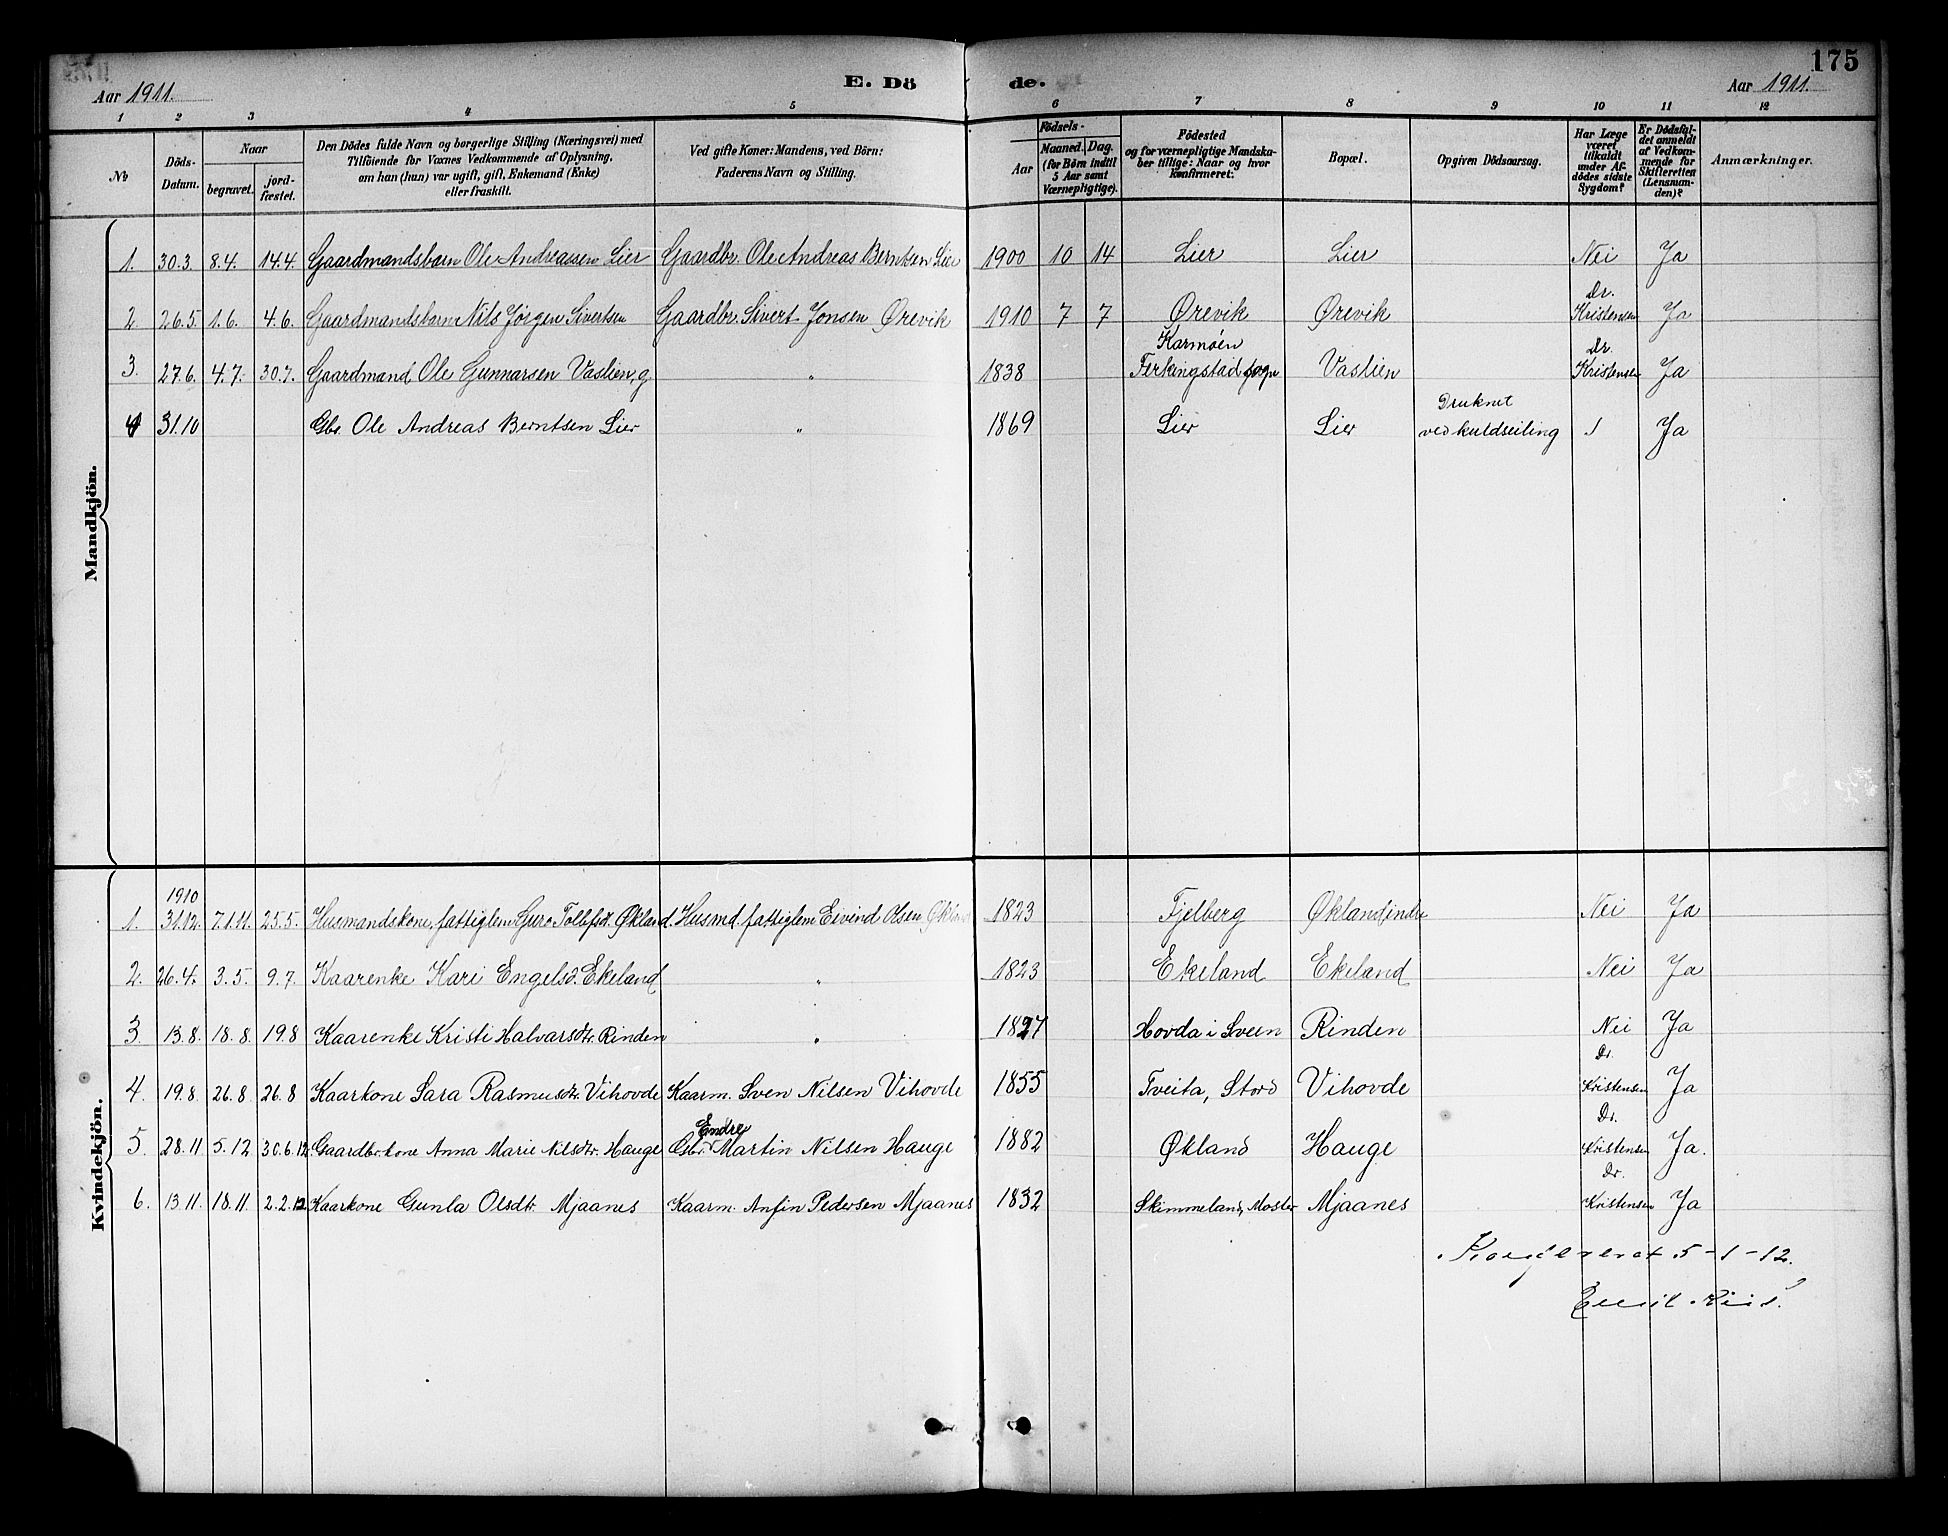 175
Aar 1911. E. Dö de. Aar 1911.
1 2 3 4 5 6 7 8 9 10 11 12
No
Döds-
Datum.
Naar
begravet.
jord-
fæstet.
Den Dödes fulde Navn og borgerlige Stilling (Næringsvei) med
Tilföiende for Voxnes Vedkommende af Oplysning,
om han (hun) var ugift, gift, Enkemand (Enke)
eller fraskilt.
Ved gifte Koner: Mandens, ved Börn:
Faderens Navn og Stilling.
Födsels-
Aar
Maaned. Dag.
(for Börn indtil
5 Aar samt
Værnepligtige).
Födested
og for værnepligtige Mandska-
ber tillige: Naar og hvor
konfirmeret.
Bopæl.
Opgiven Dödsaarsag.
Har Læge
været
tilkaldt
under Af-
dödes sidste
Sygdom?
Er Dödsfal-
det anmeldt
af Vedkom-
mende for
Skifteretten
(Lensman-
den)?
Anmærkninger.
Mandkjön.
1. 30.3. 8.4. 14.4. Gaardmandsbarn Ole Andreassen Lier Gaardbr. Ole Andreas Berntsen Lier 1900 10 14 Lier Lier Nei Ja
2 26.5. 1.6. 4.6. Gaardmandsbarn Nils Jørgen Sivertsen Gaardbr. Sivert Jonsen Ørevik 1910 7 7 Ørevik Ørevik Dr. Kristensen Ja
3. 27.6. 4.7. 30.7. Gaardmand Ole Gunnarsen Vaslien, g. " 1838 Karmøen Ferkingstad sogn Vaslien Dr. Kristensen Ja
4 31.10 Gbr. Ole Andreas Berntsen Lier " 1869 Lier Lier Druknet ved kuldseiling Ja
Kvindekjön.
1. 1910 31.12. 7.1.11. 25.5. Husmandskone, fattiglem Guro Tollefsdt. Økland. Husmd. fattiglem Eivind Olsen Økland 1823 Fjelberg Økland indre Nei Ja
2. 26.4. 3.5. 9.7. Kaarenke Kari Engelsd. Ekeland " 1823 Ekeland Ekeland Nei Ja
3. 13.8. 18.8. 19.8 Kaarenke Kristi Halvarsdtr. Rinden " 1827 Hovda i Sveen Rinden Nei Ja
4. 19.8. 26.8 26.8 Kaarkone Sara Rasmusdtr. Vihovde Kaarm. Sven Nilsen Vihovde 1855 Tveita, Stord Vihovde Dr. Kristensen Ja
5. 28.11 5.12 30.6.12. Gaardbr. kone Anna Marie Nilsdtr. Hauge Gbr. Endre Martin Nilsen Hauge 1882 Økland Hauge Dr. Kristensen Ja.
6. 13.11. 18.11. 2.2.12 Kaarkone Gunla Olsdtr. Mjaanes Kaarm. Anfin Pedersen Mjaanes 1832 Skimmeland, Moster Mjaanes Dr. Kristensen Ja
5-1-12.